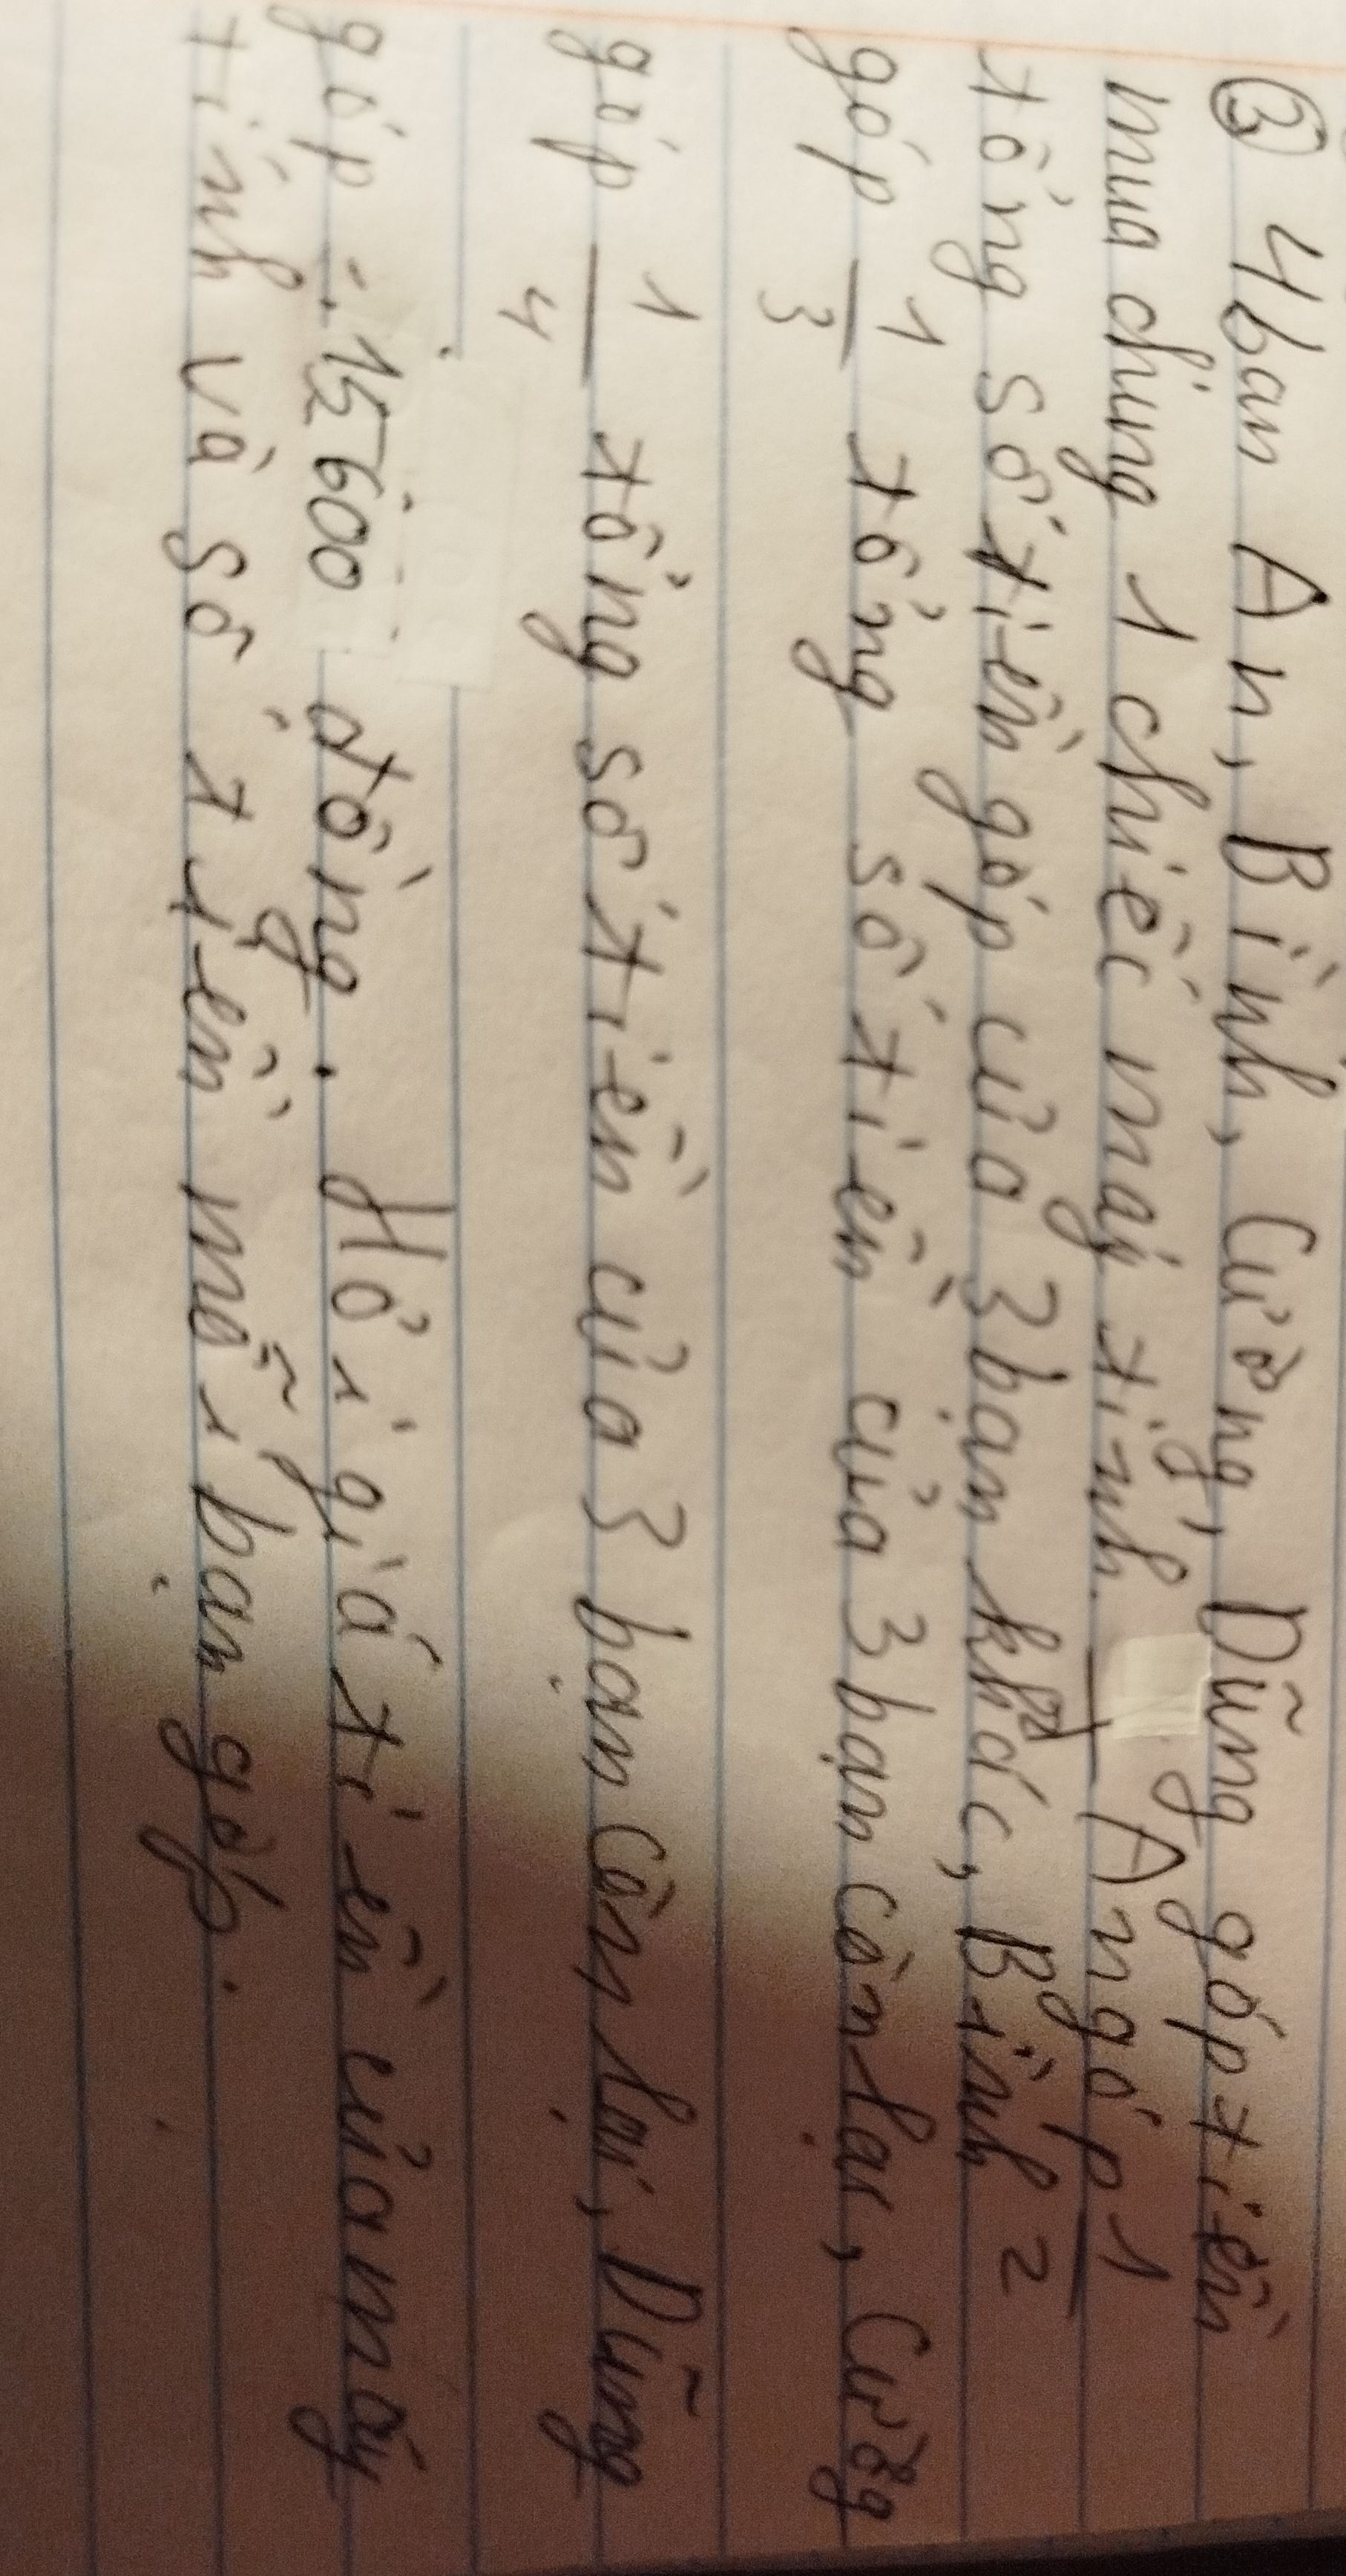 ③ 4 bạn An, Bình, Cường, Dũng góp tiền
mua chung 1 chiếc máy tính. An góp 1/2
tổng số tiền góp của 3 bạn khác, Bình
góp 1/3 tổng số tiền của 3 bạn còn lại, Cường
góp 1/4 tổng số tiền của 3 bạn còn lại, Dũng
góp 15600 đồng. Hỏi giá tiền của máy
tính và số tiền mỗi bạn góp.